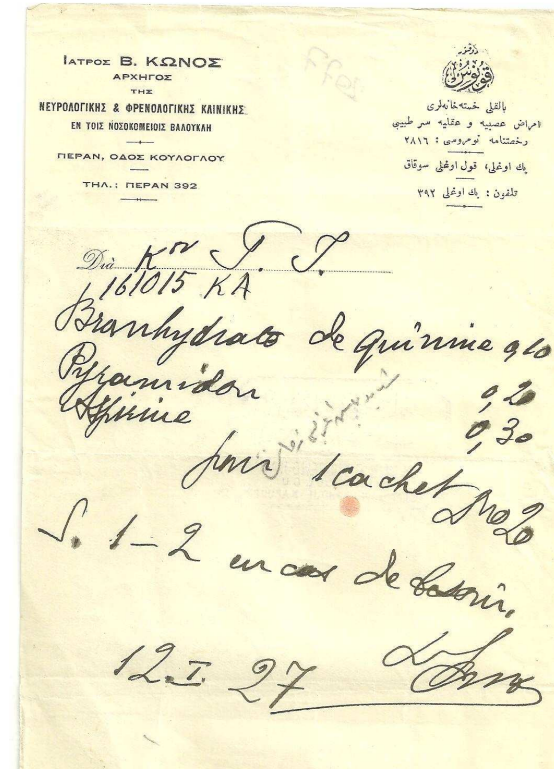 ΙΑΤΡΟΣ Β. ΚΩΝΟΣ
ΑΡΧΗΓΟΣ
ΤΗΣ
ΝΕΥΡΟΛΟΓΙΚΗΣ & ΦΡΕΝΟΛΟΓΙΚΗΣ ΚΛΙΝΙΚΗΣ
ΕΝ ΤΟΙΣ ΝΟΣΟΚΟΜΕΙΟΙΣ ΒΑΛΟΥΚΛΗ
ΠΕΡΑΝ, ΟΔΟΣ ΚΟΥΛΟΓΛΟΥ
ΤΗΛ.: ΠΕΡΑΝ 392
دوقتور
قونوس
بالقلی خسته‌خانه‌لری
امراض عصبیه و عقلیه سر طبیبی
رخصتنامه نومروسی : ٢٨١٦
بك اوغلی، قول اوغلی سوقاق
تلفون : بك اوغلی ٣٩٢
Διὰ Κον Γ. Γ.
161015 KA
Bromhydrate de quinine 0,10
Pyramidon 0,20
Aspirine 0,30
pour 1 cachet No 20
S. 1-2 en cas de besoin.
12.I.27